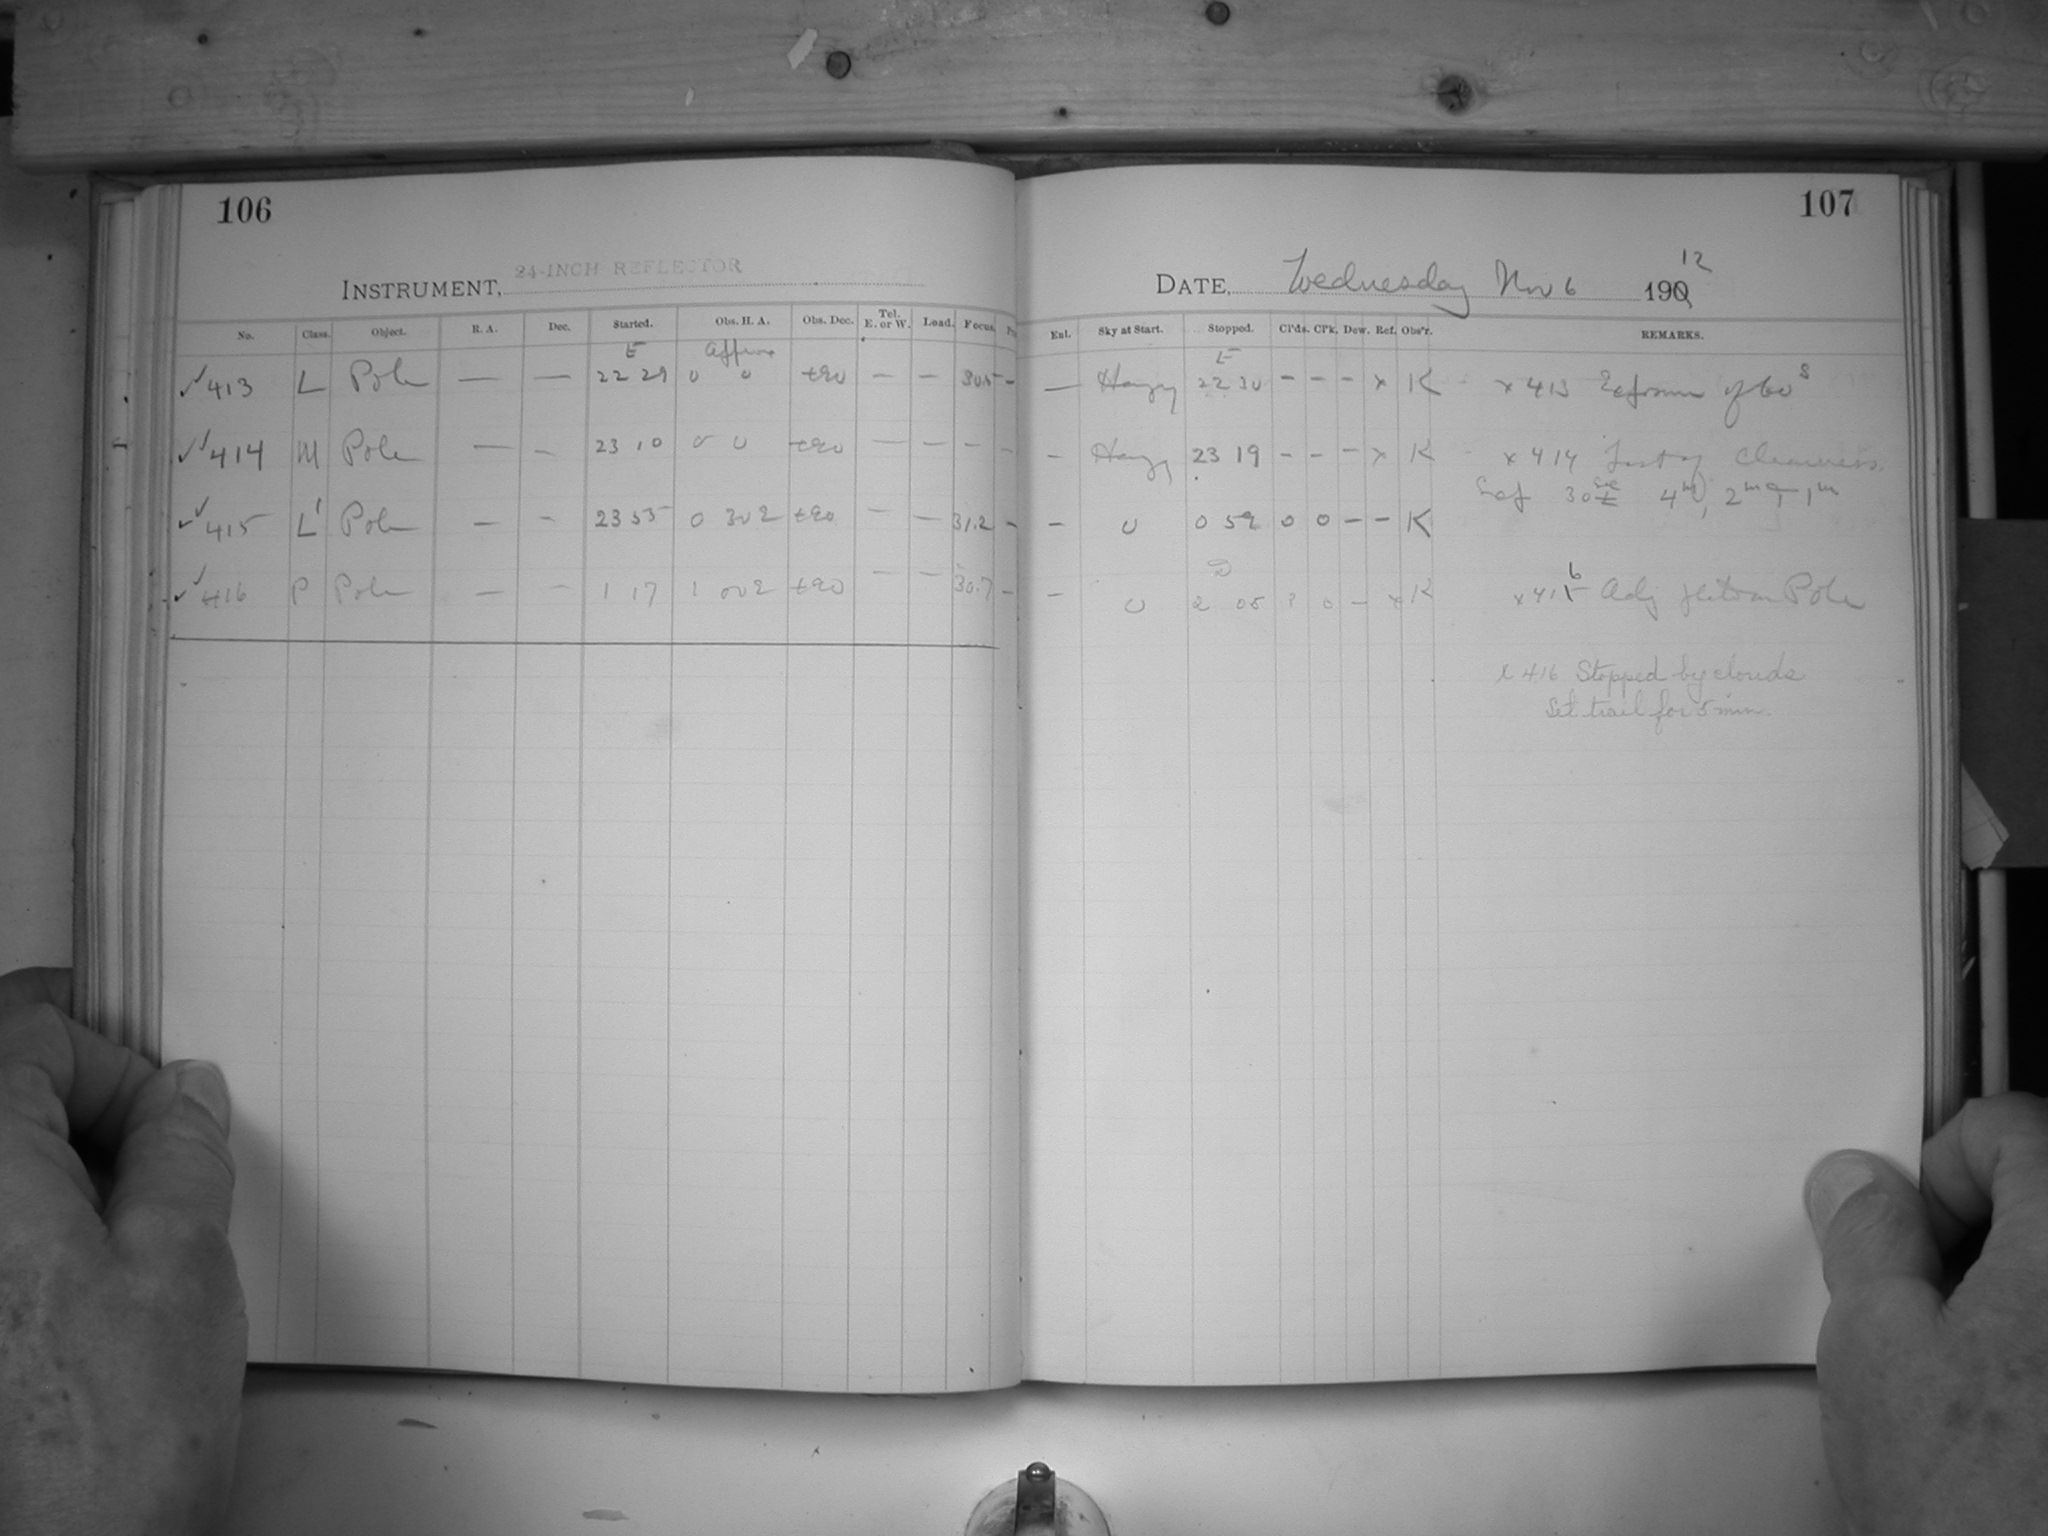 106
INSTRUMENT, 24-INCH REFLECTOR
No. Class. Object. R. A. Dec. Started. Obs. H. A. Obs. Dec. Tel. E. or W. Load. Focus.
E
✓✓413 L Pole — — 22 29 0 0 +90 — — 30.5 —
✓✓414 M Pole — — 23 10 0 0 +90 — — — —
✓✓415 L' Pole — — 23 55 0 30 E +90 — — 31.2 —
✓✓416 P Pole — — 1 17 1 00 E +90 — — 30.7 —
107
DATE, Wednesday Nov 6 1912
Enl. Sky at Start. Stopped. Cl'ds. Cl'k. Dew. Ref. Obs'r. REMARKS.
E
— Hazy 22 30 - - - x K x 413 Exposure of 60 s
— Hazy 23 19 - - - x K x 414 Test of Clearness
30 sec 4 m, 2 m 1 m
— 0 0 59 0 0 - - K
— 0 2 05 ? 0 - x K x 416 Adj Pole
x 416 Stopped by clouds
Set trail for 5 min.